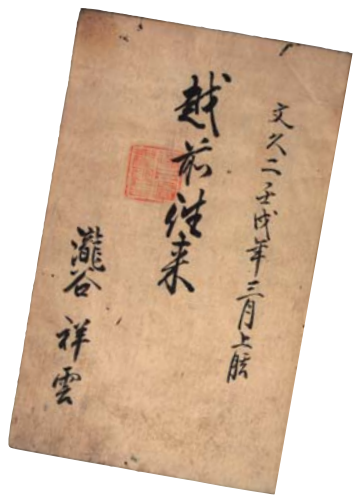 文久二壬戌年三月上浣
越前往来
瀧谷
祥雲